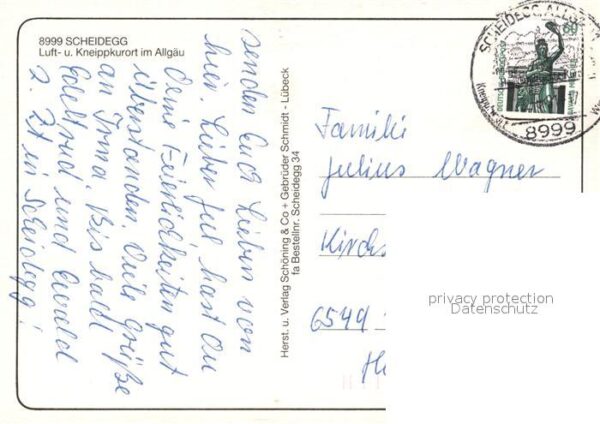 8999 SCHEIDEGG
Luft- u. Kneippkurort im Allgäu
senden Euch Lieben von
hier. Lieber Jul, hast Du
Deine Feierlichkeiten gut
überstanden. Viele Grüße
an Irma. Bis bald
Edeltrud und Ewald
z. Zt in Scheidegg!
Herst. u. Verlag Schöning & Co + Gebrüder Schmidt · Lübeck
fa Bestellnr. Scheidegg 34
SCHEIDEGG, ALLG
60
8999
Familie
Julius Wagner
Kirchs
6549
privacy protection
Datenschutz